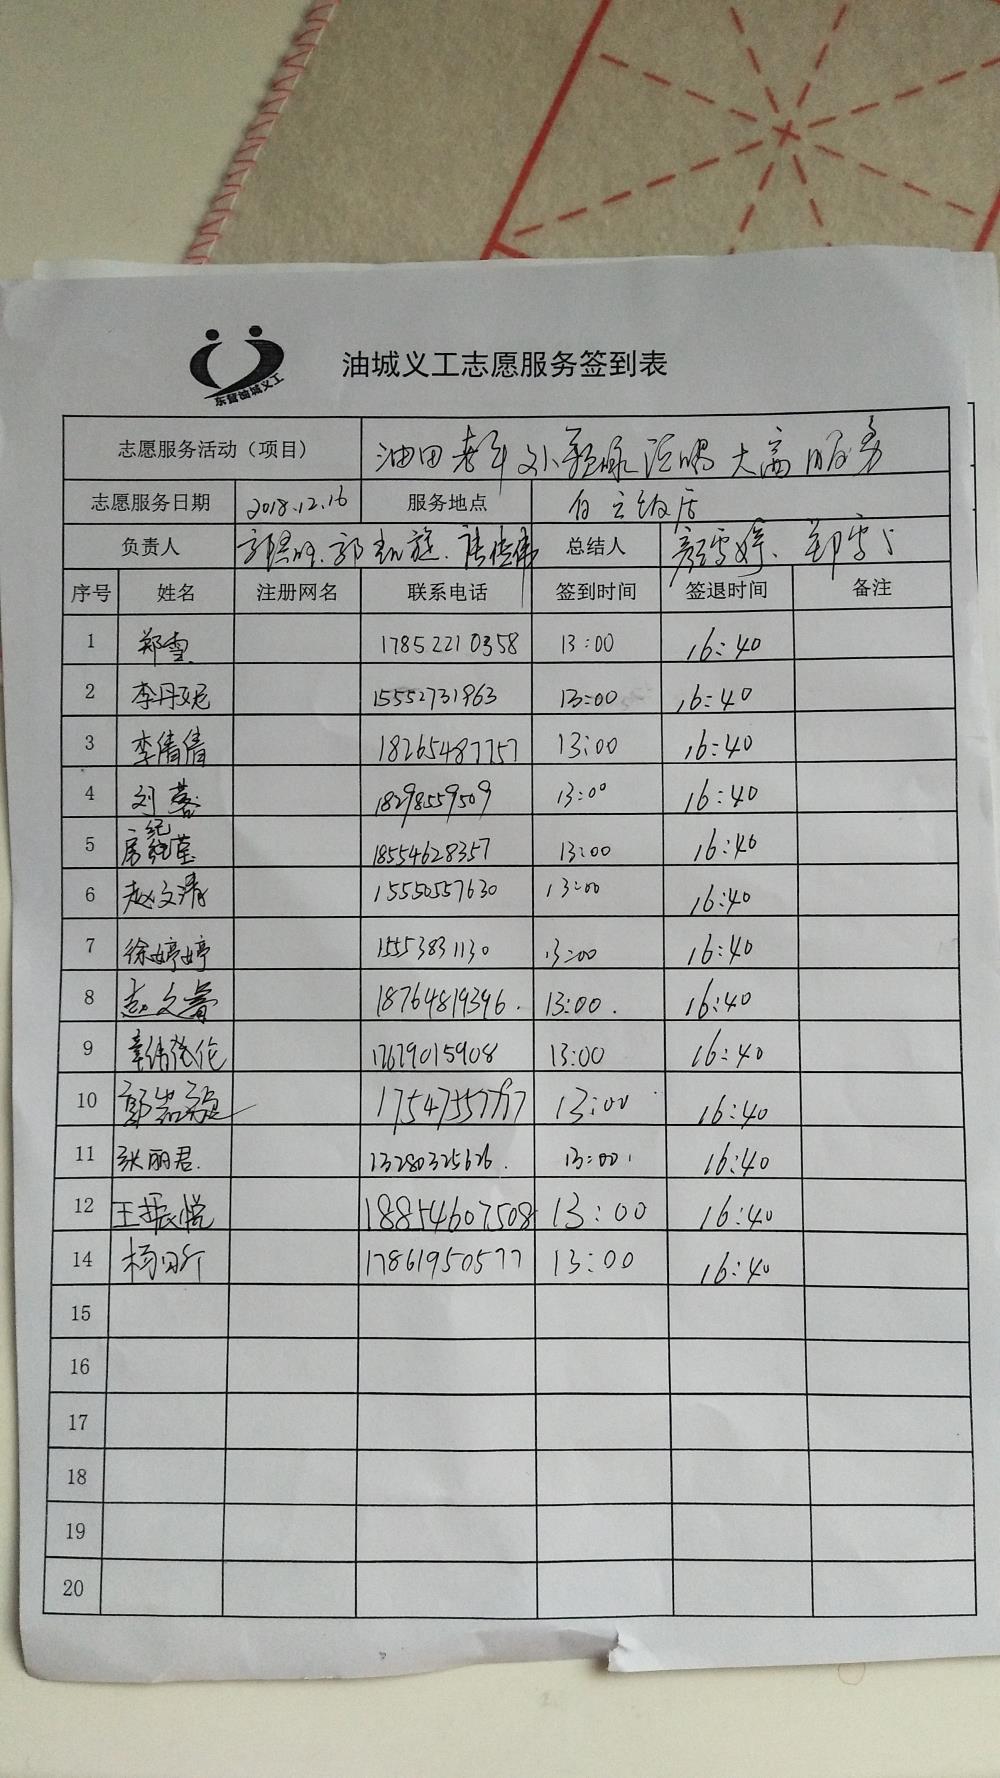 东营油城义工
油城义工志愿服务签到表
志愿服务活动（项目） 油田老年 大 服务
志愿服务日期 2018.12.16 服务地点 白云饭店
负责人 郭凯旋. 总结人 颜雪婷、郑雪
序号 姓名 注册网名 联系电话 签到时间 签退时间 备注
1 郑雪 17852210358 13:00 16:40
2 李丹妮 15552731963 13:00 16:40
3 李倩倩 18265487757 13:00 16:40
4 刘蓉 18298559509 13:00 16:40
5 房纪莹 18554628357 13:00 16:40
6 赵文清 15550557630 13:00 16:40
7 徐婷婷 15553831130 13:00 16:40
8 18764819396. 13:00. 16:40
9 17679015908 13:00 16:40
10 13:00 16:40
11 张丽君. 13280325626. 13:00. 16:40
12 王振悦 18854607508 13:00 16:40
14 17861950577 13:00 16:40
15
16
17
18
19
20